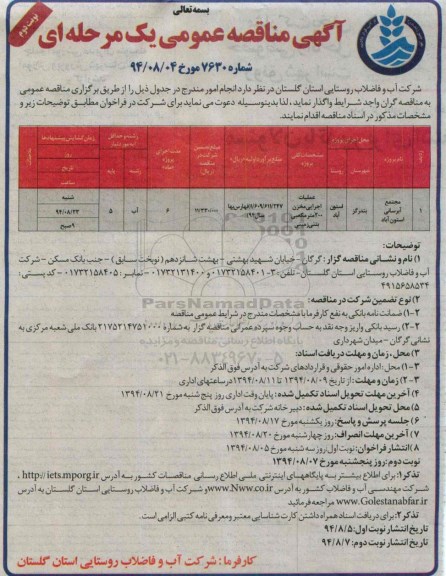 بسمه تعالی
نوبت دوم
آگهی مناقصه عمومی یک مرحله ای
شماره ۷۶۳۰ مورخ ۹۴/۰۸/۰۴
شرکت آب و فاضلاب روستایی استان گلستان در نظر دارد انجام امور مندرج در جدول ذیل را از طریق برگزاری مناقصه عمومی
به مناقصه گران واجد شرایط واگذار نماید، لذا بدینوسیله دعوت می نماید برای شرکت در فراخوان مطابق توضیحات زیر و
مشخصات مذکور در اسناد مناقصه اقدام نمایند.
نام پروژه
شهرستان
روستا
روز
ساعت
رشته
پایه
۱
مجتمع آبرسانی استون آباد
بندرگز
استون آباد
عملیات اجرایی مخزن
۶
آب
۵
شنبه
۹۴/۰۸/۲۳
۹ صبح
توضیحات:
۱) نام و نشانی مناقصه گزار: گرگان - خیابان شهید بهشتی - بهشت شانزدهم (نوبخت سابق) - جنب بانک مسکن - شرکت
آب و فاضلاب روستایی استان گلستان - تلفن: ۳-۰۱۷۳۲۱۵۸۴۰۱ و ۰۱۷۳۲۱۳۱۴۰۰ - نمابر: ۰۱۷۳۲۱۵۸۴۰۵ - کد پستی:
۴۹۱۵۶۵۸۵۳۴
۲) نوع تضمین شرکت در مناقصه:
۱-۲) ضمانت نامه بانکی به نفع کارفرما با مشخصات مندرج در شرایط عمومی مناقصه
۲-۲) رسید بانکی واریز وجه نقد به حساب وجوه سپرده عمرانی مناقصه گزار به شماره ۲۱۷۵۲۱۴۷۵۱۰۰۰ بانک ملی شعبه مرکزی به
نشانی گرگان - میدان شهرداری
۳) محل، زمان و مهلت دریافت اسناد:
۱-۳) محل: اداره امور حقوقی و قراردادهای شرکت به آدرس فوق الذکر
۲-۳) زمان و مهلت: از تاریخ ۱۳۹۴/۰۸/۰۹ تا ۱۳۹۴/۰۸/۱۱ در ساعتهای اداری
۴) آخرین مهلت تحویل اسناد تکمیل شده: پایان وقت اداری روز پنج شنبه مورخ ۱۳۹۴/۰۸/۲۱
۵) محل تحویل اسناد تکمیل شده: دبیرخانه شرکت به آدرس فوق الذکر
۶) جلسه پرسش و پاسخ: روز یکشنبه مورخ ۱۳۹۴/۰۸/۱۷
۷) آخرین مهلت انصراف: روز چهارشنبه مورخ ۱۳۹۴/۰۸/۲۰
۸) انتشار فراخوان: نوبت اول: روز سه شنبه مورخ ۱۳۹۴/۰۸/۰۵
نوبت دوم: روز پنجشنبه مورخ ۱۳۹۴/۰۸/۰۷
تذکر۱: برای اطلاع بیشتر به پایگاههای اینترنتی ملی اطلاع رسانی مناقصات کشور به آدرس http://iets.mporg.ir ،
شرکت مهندسی آب و فاضلاب کشور به آدرس www.Nww.co.ir و شرکت آب و فاضلاب روستایی استان گلستان به آدرس
www.Golestanabfar.ir مراجعه فرمائید.
تذکر۲: برای دریافت اسناد همراه داشتن کارت شناسایی معتبر و معرفی نامه کتبی الزامی است.
تاریخ انتشار نوبت اول: ۹۴/۸/۵
تاریخ انتشار نوبت دوم: ۹۴/۸/۷
کارفرما: شرکت آب و فاضلاب روستایی استان گلستان